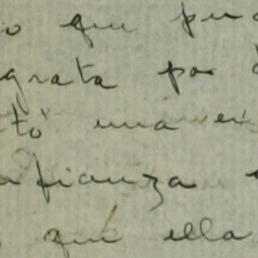 o que pud
grata por
tó una en
nfianza
que ella